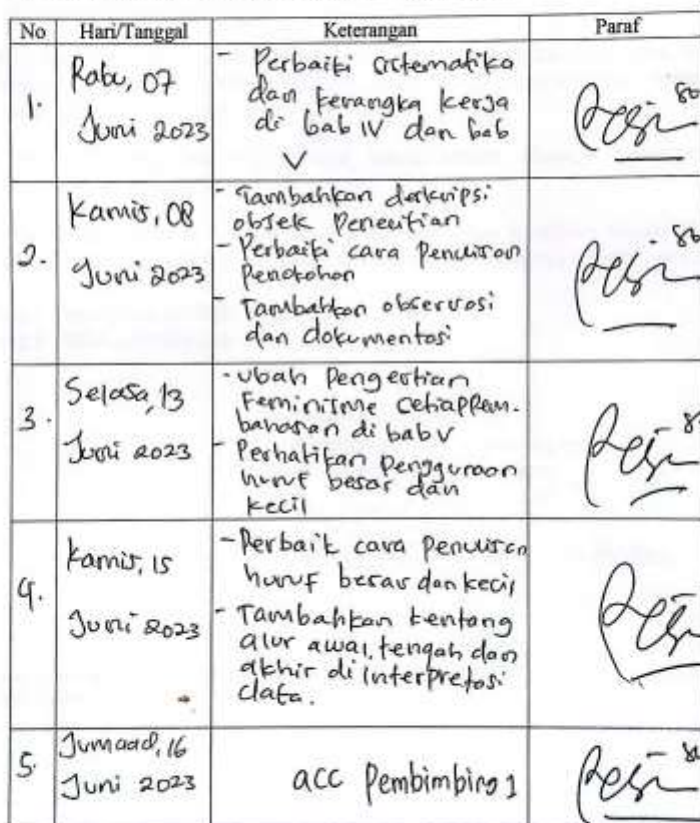 No Hari/Tanggal Keterangan Paraf
1.
Rabu, 07
Juni 2023
- Perbaiki sistematika
dan kerangka kerja
di bab IV dan bab
V
2.
Kamis, 08
Juni 2023
- Tambahkan deskripsi
obsek Penelitian
- Perbaiki cara Penulisan
Penokohan
- Tambahkan observasi
dan dokumentasi
3.
Selasa, 13
Juni 2023
- Ubah Pengertian
Feminisme setiap Pem-
bahasan di bab V
- Perhatikan Penggunaan
huruf besar dan
kecil
4.
Kamis, 15
Juni 2023
- Perbaik cara Penulisan
huruf besar dan kecil
- Tambahkan tentang
alur awal, tengah dan
akhir di Interpretasi
data.
5.
Jumaad, 16
Juni 2023
acc Pembimbing 1